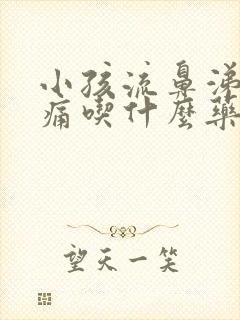 小孩流鼻涕
痛喫什麼藥
望天一笑